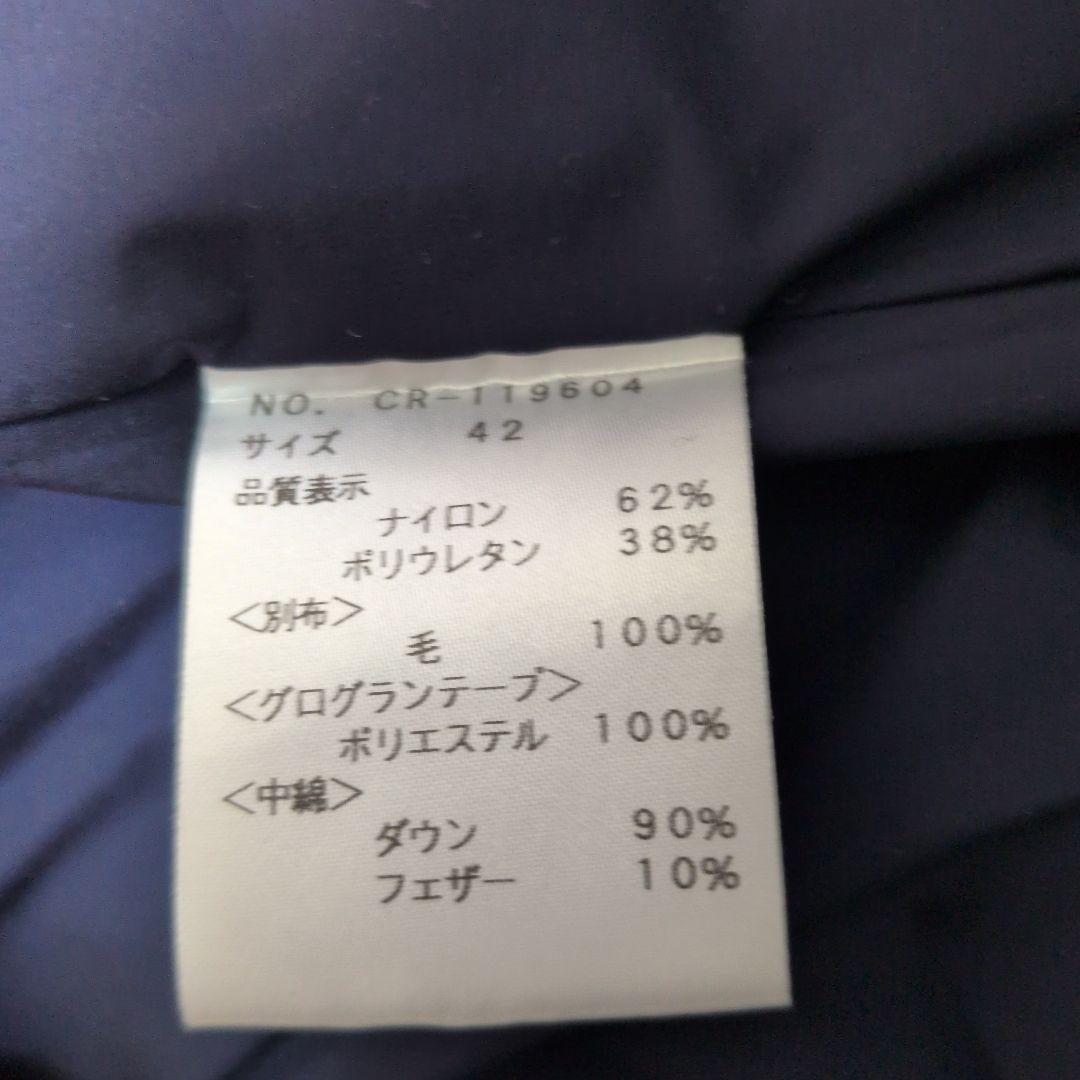 NO. CR-119604
サイズ 42
品質表示
ナイロン 62%
ポリウレタン 38%
<別布>
毛 100%
<グログランテープ>
ポリエステル 100%
<中綿>
ダウン 90%
フェザー 10%